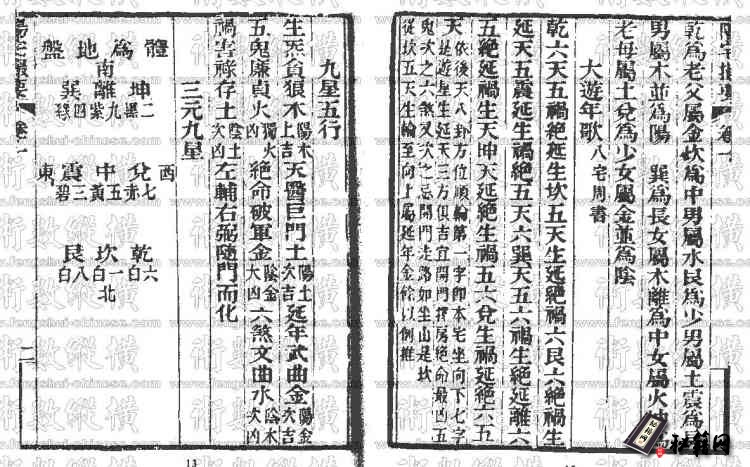 陽宅撮要 卷一
乾為老父屬金坎為中男屬水艮為少男屬土震為
男屬木並為陽 巽為長女屬木離為中女屬火坤
老母屬土兌為少女屬金並為陰
大遊年歌 八宅周書
乾六天五禍絕延生坎五天生延絕禍六艮六絕禍生
延天五震延生禍絕五天六巽天五六禍生絕延離六
五絕延禍生天坤天延絕生禍五六兌生禍延絕六五
天 依後天八卦方位順輪第一字即本宅坐向下七字
是遊星生延天三方俱吉宜開門擇房絕命最凶五
鬼次之六煞又次之忌開門走路如坐山是坎
從坎五天生輪至向上屬延年金餘以例推
九星五行
生炁貪狼木 陽木上吉 天醫巨門土 陽土次吉 延年武曲金 陽金次吉
五鬼廉貞火 獨火大凶 絕命破軍金 陰金大凶 六煞文曲水 陰水次凶
禍害祿存土 陰土次凶 左輔右弼隨門而化
三元九星
西
兌七赤 乾六白
南 北
坤二黑 離九紫 巽四綠
中五黃 坎一白
震三碧 艮八白
東
體為地盤
陽宅撮要 卷一
二
13
術數縱橫
www.fengshui-chinese.com
秘籍网